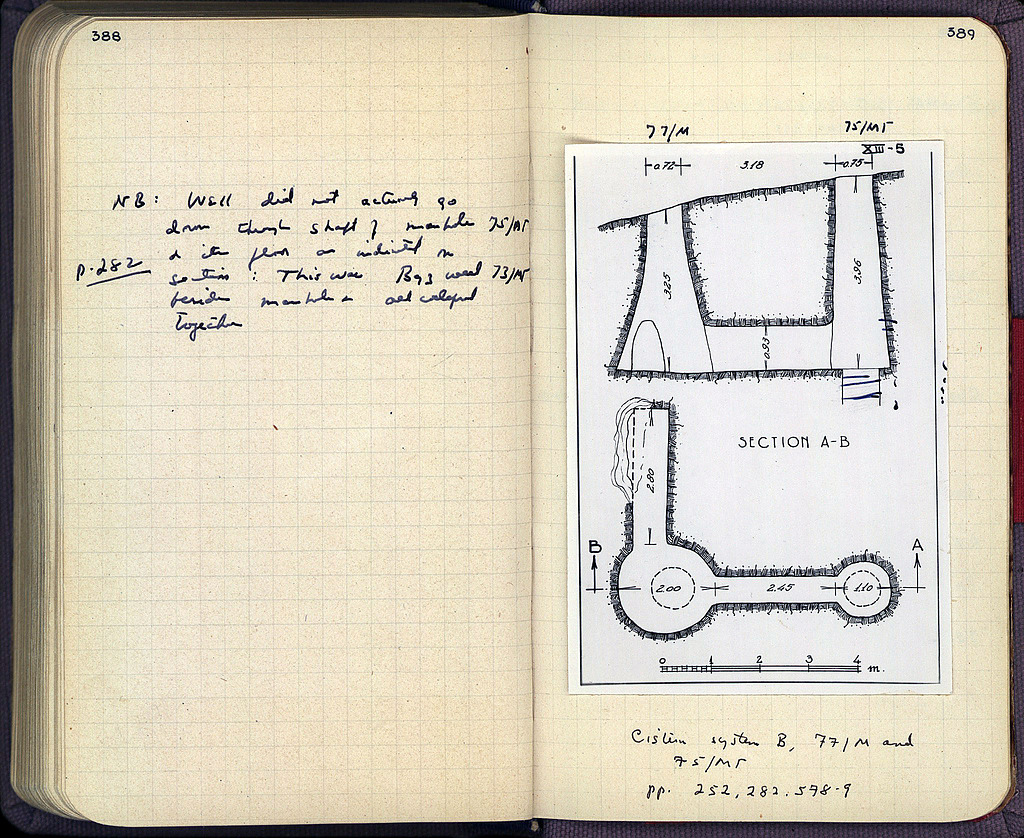 388
NB: Well did not actually go
down through shaft of manhole 75/ΜΓ
p. 282
& its floor as indicated on
section: This was well 73/ΜΓ
beside manhole & collapsed
together
389
77/Μ 75/ΜΓ
XIII-5
0.72 3.18 0.75
3.25
3.96
0.93
SECTION A-B
2.80
B A
2.00 2.45 1.10
0 1 2 3 4 m.
Cistern system B, 77/Μ and
75/ΜΓ
pp. 252, 282. 578-9